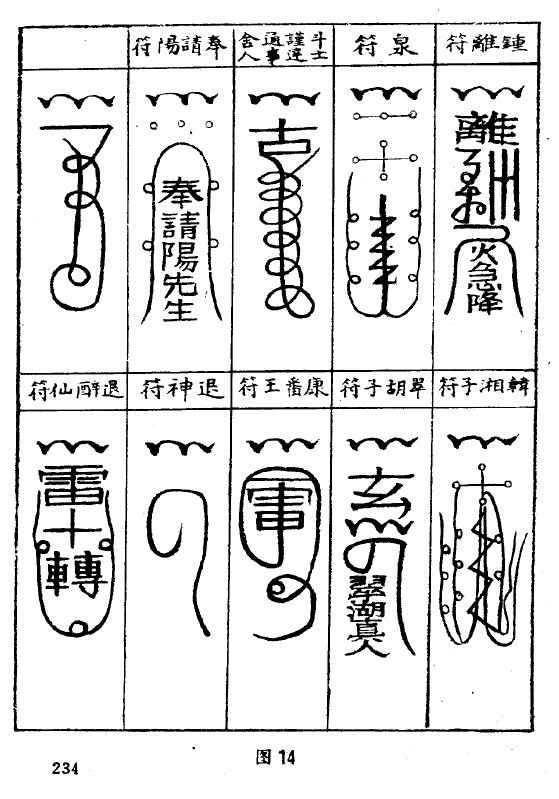 鍾離符
泉符
斗士謹逹通事舍人
奉請陽符
離
火急降
古
奉請陽先生
韓湘子符
翠胡子符
康番王符
退神符
退醉仙符
玄
翠湖真人
雷十轉
图14
234